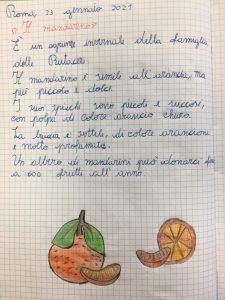 Roma, 23 gennaio 2021
"Il mandarino"
È un agrume invernale della famiglia
delle Rutacee.
Il mandarino è simile all'arancia, ma
più piccolo e dolce.
I suoi spicchi sono piccoli e succosi,
con polpa di colore arancio chiaro.
La buccia è sottile, di colore arancione
e molto profumata.
Un albero di mandarini può donarci fino
a 600 frutti all'anno.